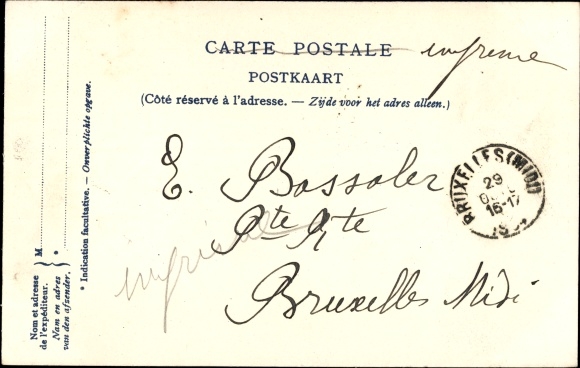 CARTE POSTALE imprimé
POSTKAART
(Côté réservé à l'adresse. — Zijde voor het adres alleen.)
E. Bossoler
Pte Rte
Bruxelles Midi
imprimé
BRUXELLES (MIDI)
29
16-17
M
*
Nom et adresse
de l'expéditeur.
Nam en adres
van den afzender.
* Indication facultative. — Onverplichte opgave.